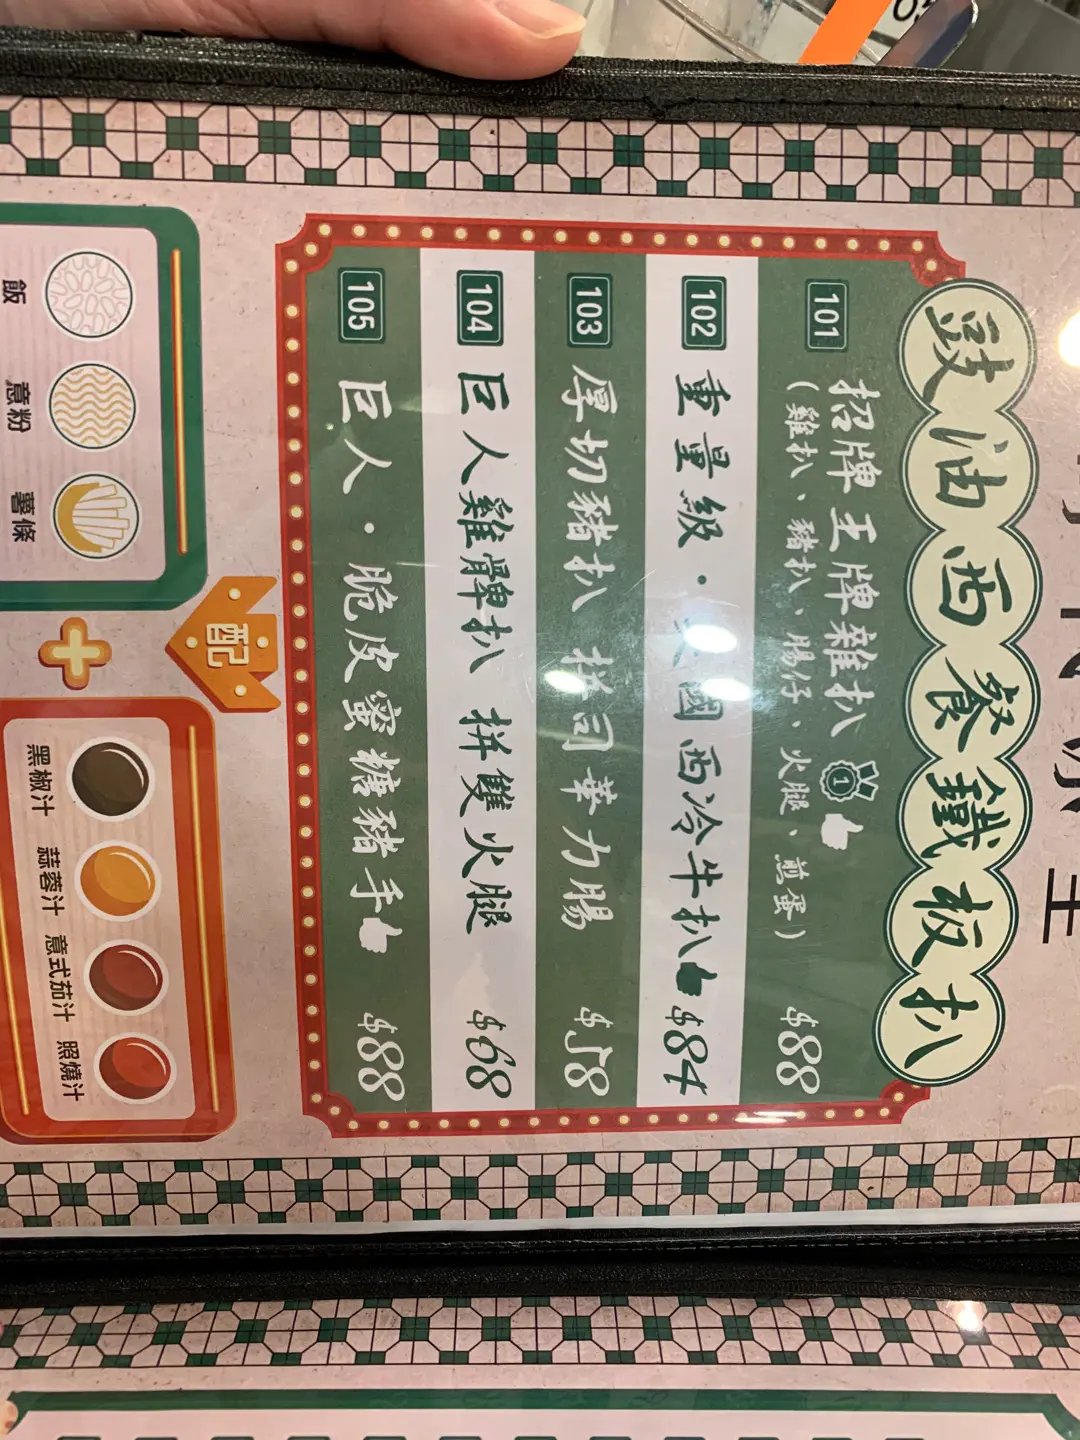 豉油西餐鐵板扒
101 招牌王牌雜扒 1 $88
(雞扒、豬扒、腸仔、火腿、煎蛋)
102 重量級・國西冷牛扒 $84
103 厚切豬扒 拼司華力腸 $58
104 巨人雞髀扒 拼雙火腿 $68
105 巨人・脆皮蜜糖豬手 $88
配
飯 意粉 薯條
+
黑椒汁 蒜蓉汁 意式茄汁 照燒汁